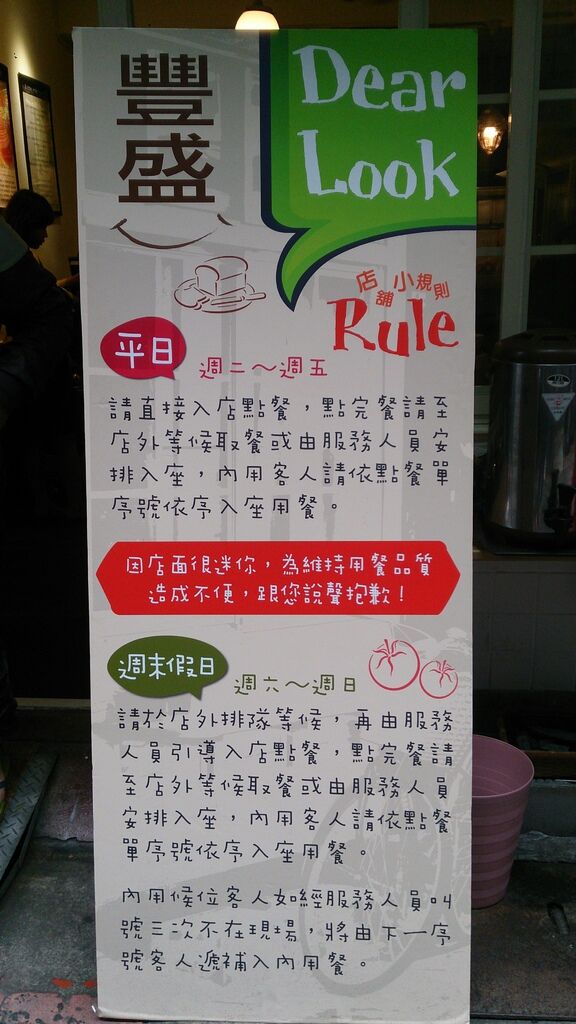 豐盛
Dear
Look
店舖小規則
Rule
平日
週二～週五
請直接入店點餐，點完餐請至
店外等候取餐或由服務人員安
排入座，內用客人請依點餐單
序號依序入座用餐。
因店面很迷你，為維持用餐品質
造成不便，跟您說聲抱歉！
週末假日
週六～週日
請於店外排隊等候，再由服務
人員引導入店點餐，點完餐請
至店外等候取餐或由服務人員
安排入座，內用客人請依點餐
單序號依序入座用餐。
內用候位客人如經服務人員叫
號三次不在現場，將由下一序
號客人遞補入內用餐。